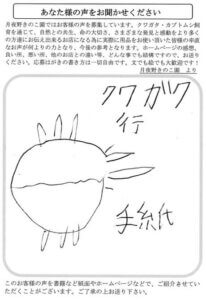 あなた様の声をお聞かせください
月夜野きのこ園ではお客様の声を募集しています。クワガタ・カブトムシ飼
育を通じて、自然との共生、命の大切さ、さまざまな発見と感動をより多く
の方達にお伝え出来るお店になる為に実際に用品をお使い頂いた皆様の率直
なお声が何よりの力となり、今後の参考となります。ホームページの感想、
良い所、悪い所、他のお店との違い等、どんな事でも結構ですので、お送り
ください。応募はがきの書き方は一切自由です。文でも絵でも大歓迎です！
月夜野きのこ園 より
クワガタ
行
手紙
このお客様の声を書籍など紙面やホームページなどで、ご紹介させてい
ただくことがございます。ご了承の上お送り下さい。